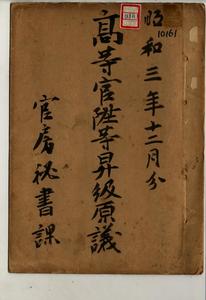 昭和三年十二月分
10161
高等官陞等昇級原議
官房秘書課